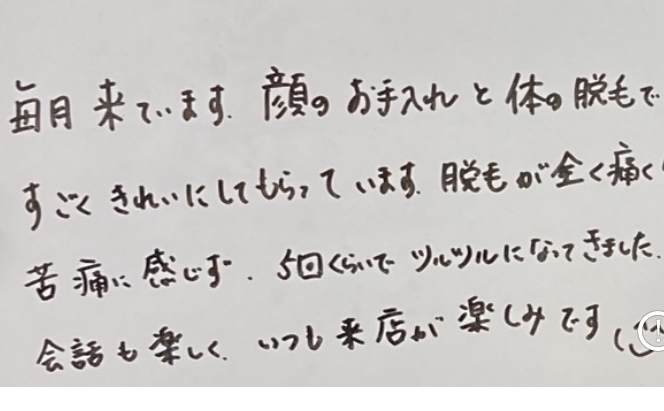 毎月来ています。顔のお手入れと体の脱毛で
すごくきれいにしてもらっています。脱毛が全く痛く
苦痛に感じず、5回くらいでツルツルになってきました。
会話も楽しく、いつも来店が楽しみです